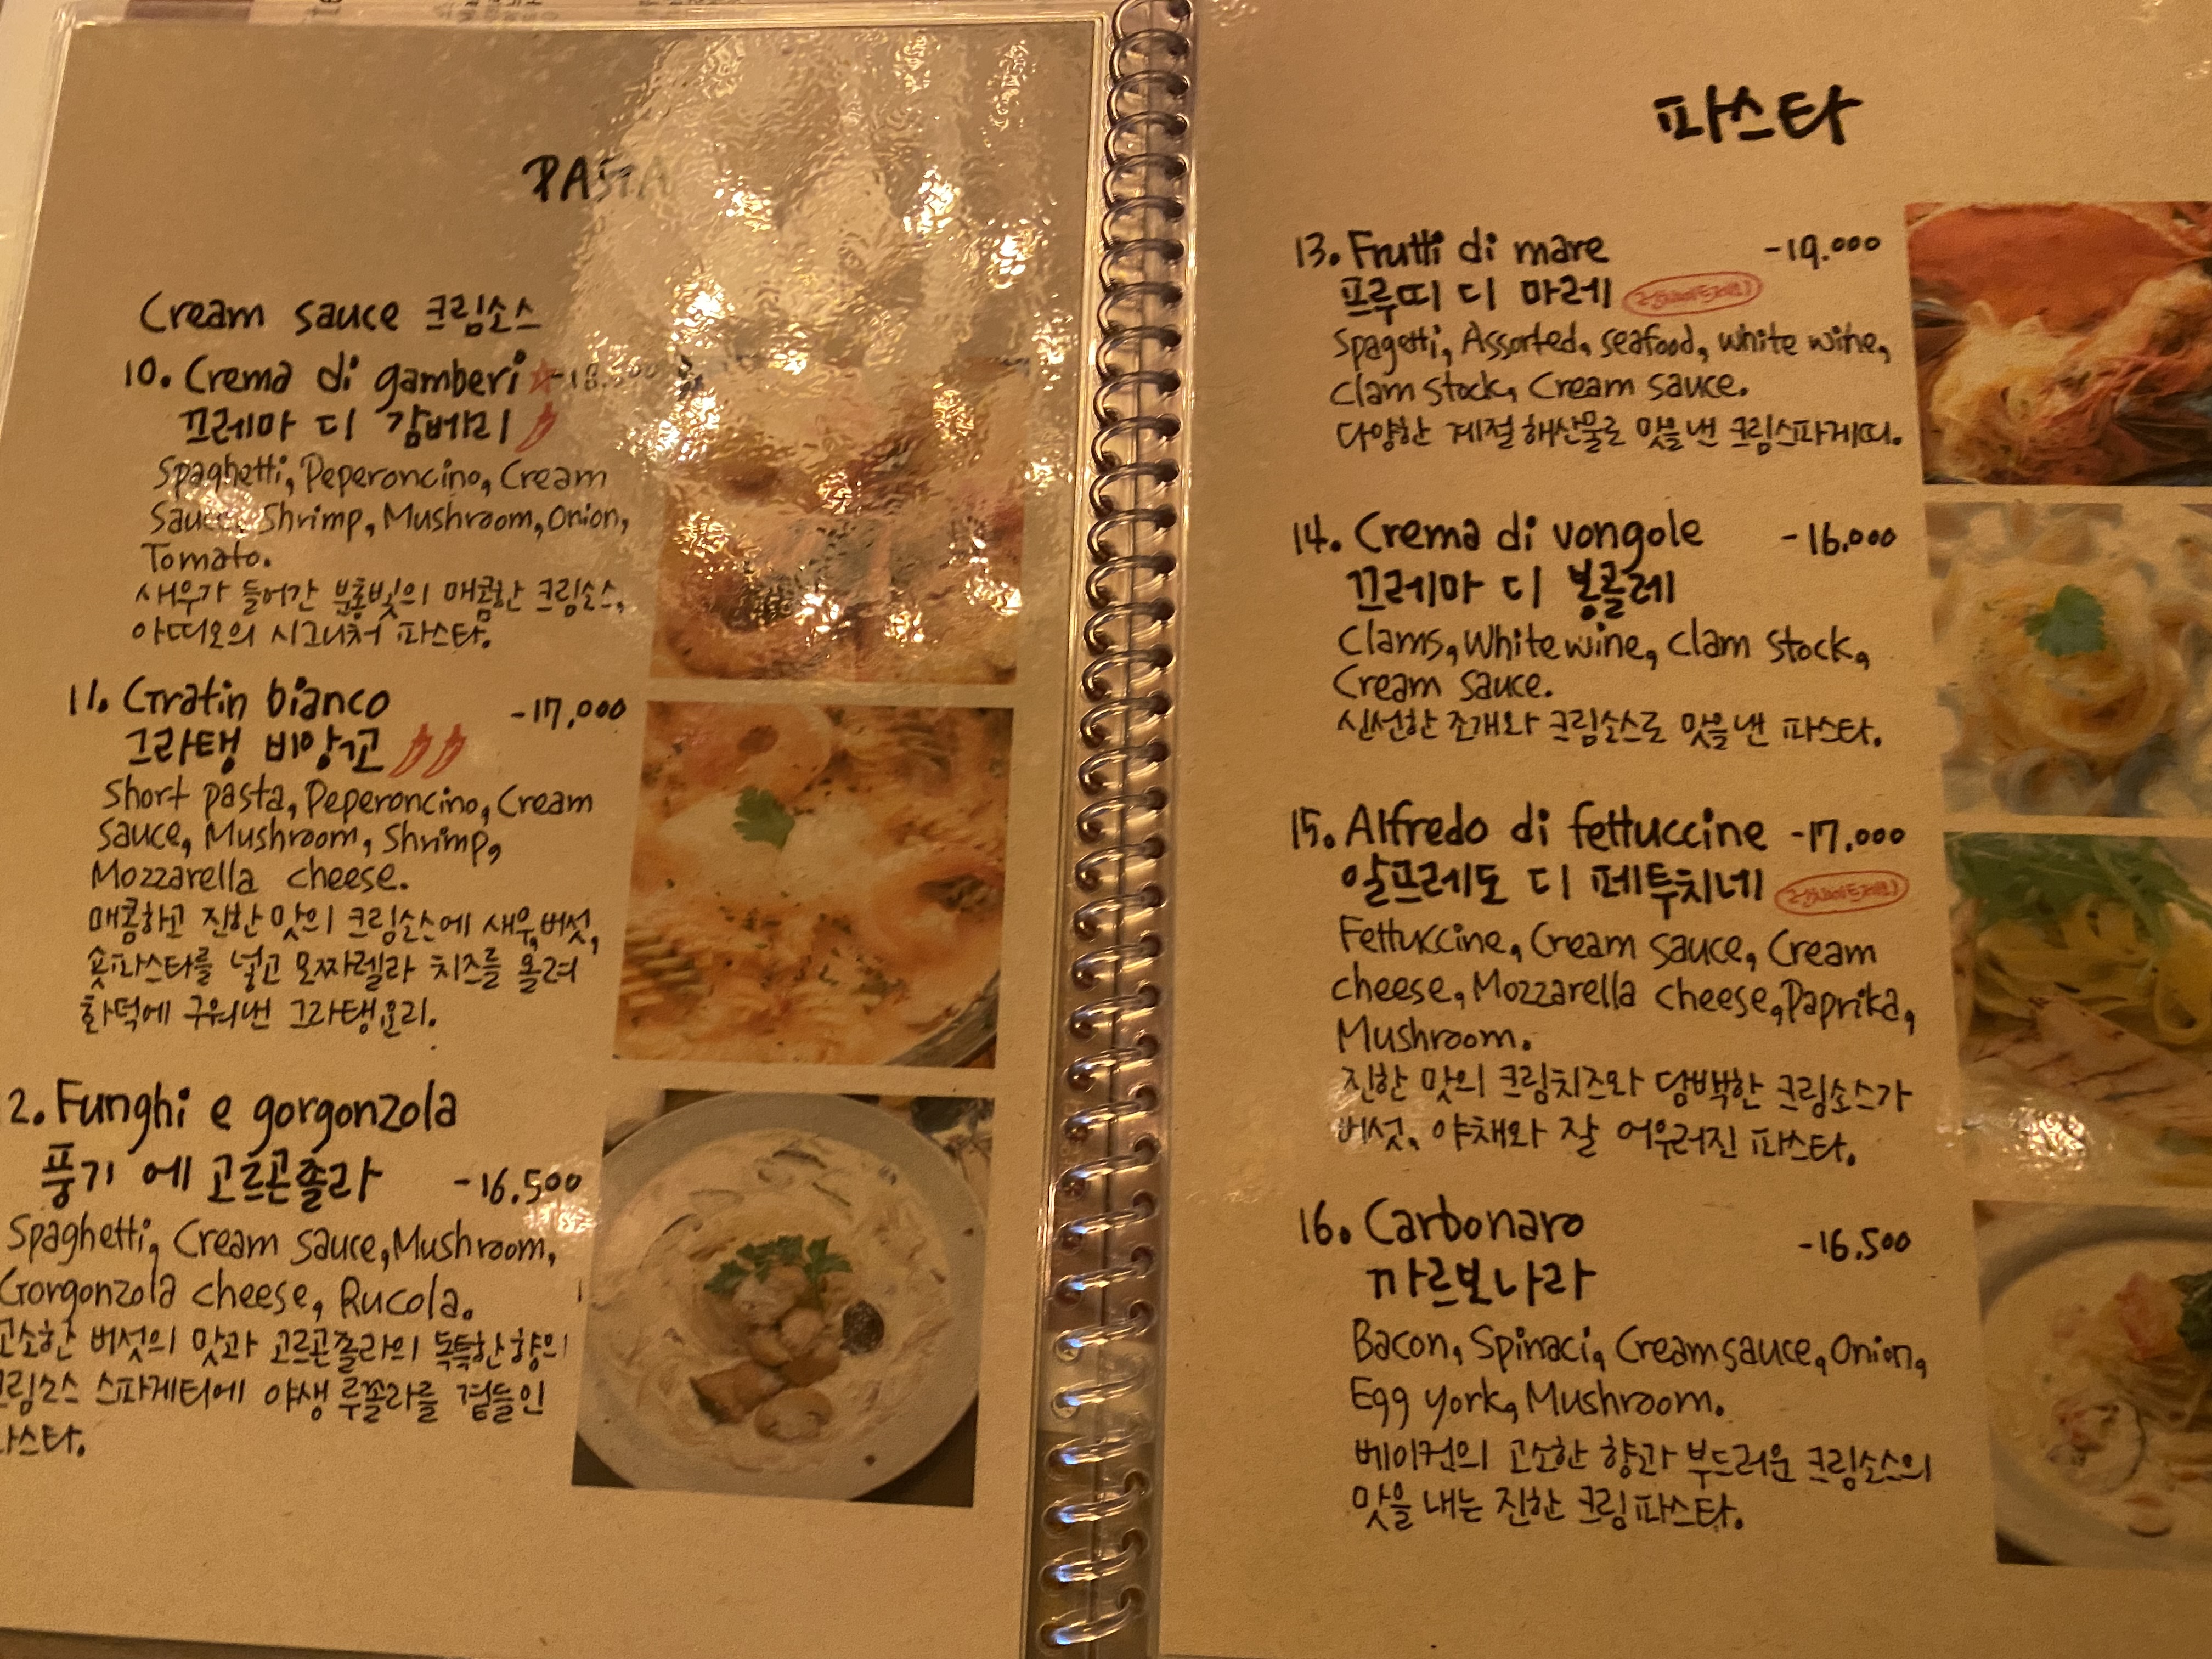 PASTA
Cream sauce 크림소스
10. Crema di gamberi
끄레마 디 감베리
Spaghetti, Peperoncino, Cream
Sauce, Shrimp, Mushroom, Onion,
Tomato.
새우가 들어간 분홍빛의 매콤한 크림소스,
아띠오의 시그니처 파스타.
11. Gratin bianco -17,000
그라탱 비앙꼬
Short pasta, Peperoncino, Cream
sauce, Mushroom, Shrimp,
Mozzarella cheese.
매콤하고 진한 맛의 크림소스에 새우,버섯,
숏파스타를 넣고 모짜렐라 치즈를 올려
화덕에 구워낸 그라탱요리.
2. Funghi e gorgonzola
풍기 에 고르곤졸라 -16.500
Spaghetti, Cream sauce, Mushroom,
Gorgonzola cheese, Rucola.
고소한 버섯의 맛과 고르곤졸라의 독특한 향의
크림소스 스파게티에 야생 루꼴라를 곁들인
파스타.
파스타
13. Frutti di mare -19.000
프루띠 디 마레
Spagetti, Assorted, seafood, white wine,
clam stock, Cream sauce.
다양한 계절 해산물로 맛을 낸 크림스파게띠.
14. Crema di vongole -16.000
끄레마 디 봉골레
Clams, White wine, clam stock,
Cream sauce.
신선한 조개와 크림소스로 맛을 낸 파스타.
15. Alfredo di fettuccine -17.000
알프레도 디 페투치네
Fettuccine, Cream sauce, Cream
cheese, Mozzarella cheese, Paprika,
Mushroom.
진한 맛의 크림치즈와 담백한 크림소스가
버섯, 야채와 잘 어우러진 파스타.
16. Carbonaro -16.500
까르보나라
Bacon, Spinaci, Cream sauce, Onion,
Egg york, Mushroom.
베이컨의 고소한 향과 부드러운 크림소스의
맛을 내는 진한 크림파스타.